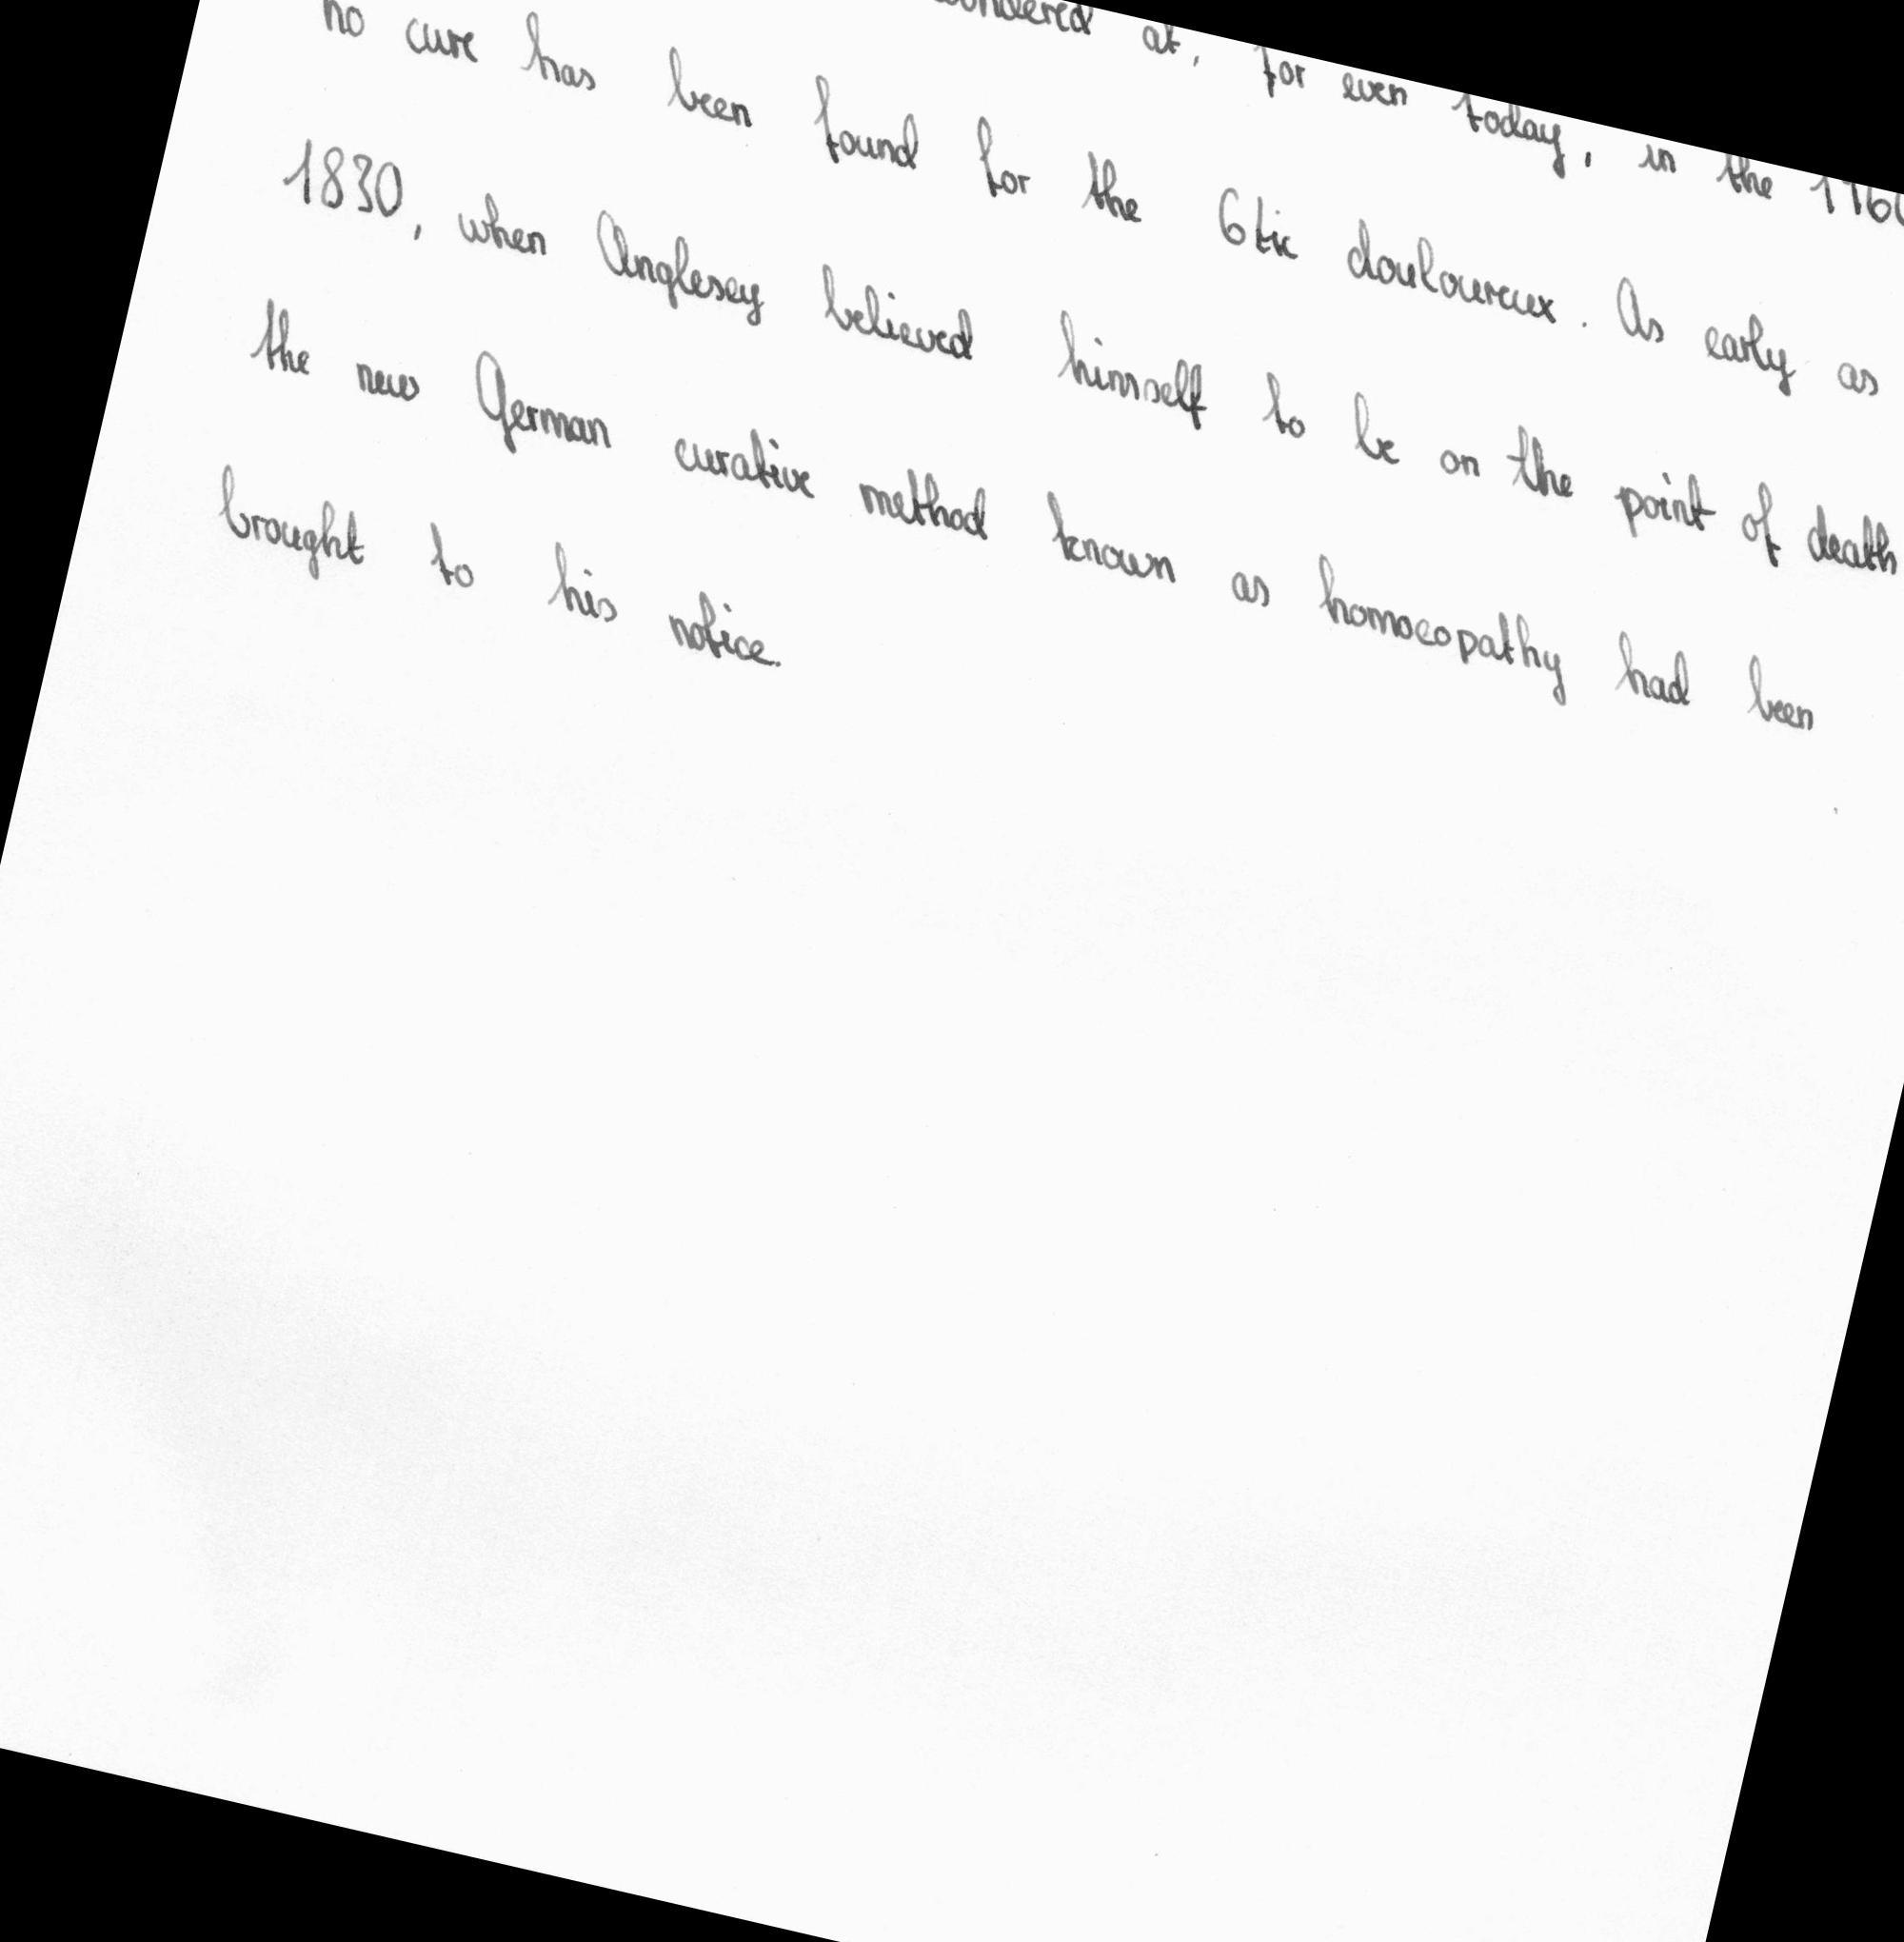 wondered at, for even today, in the
no cure has been found for the 6tic douloureux. As early as
1830, when Anglesey believed himself to be on the point of death
the new German curative method known as homoeopathy had been
brought to his notice.